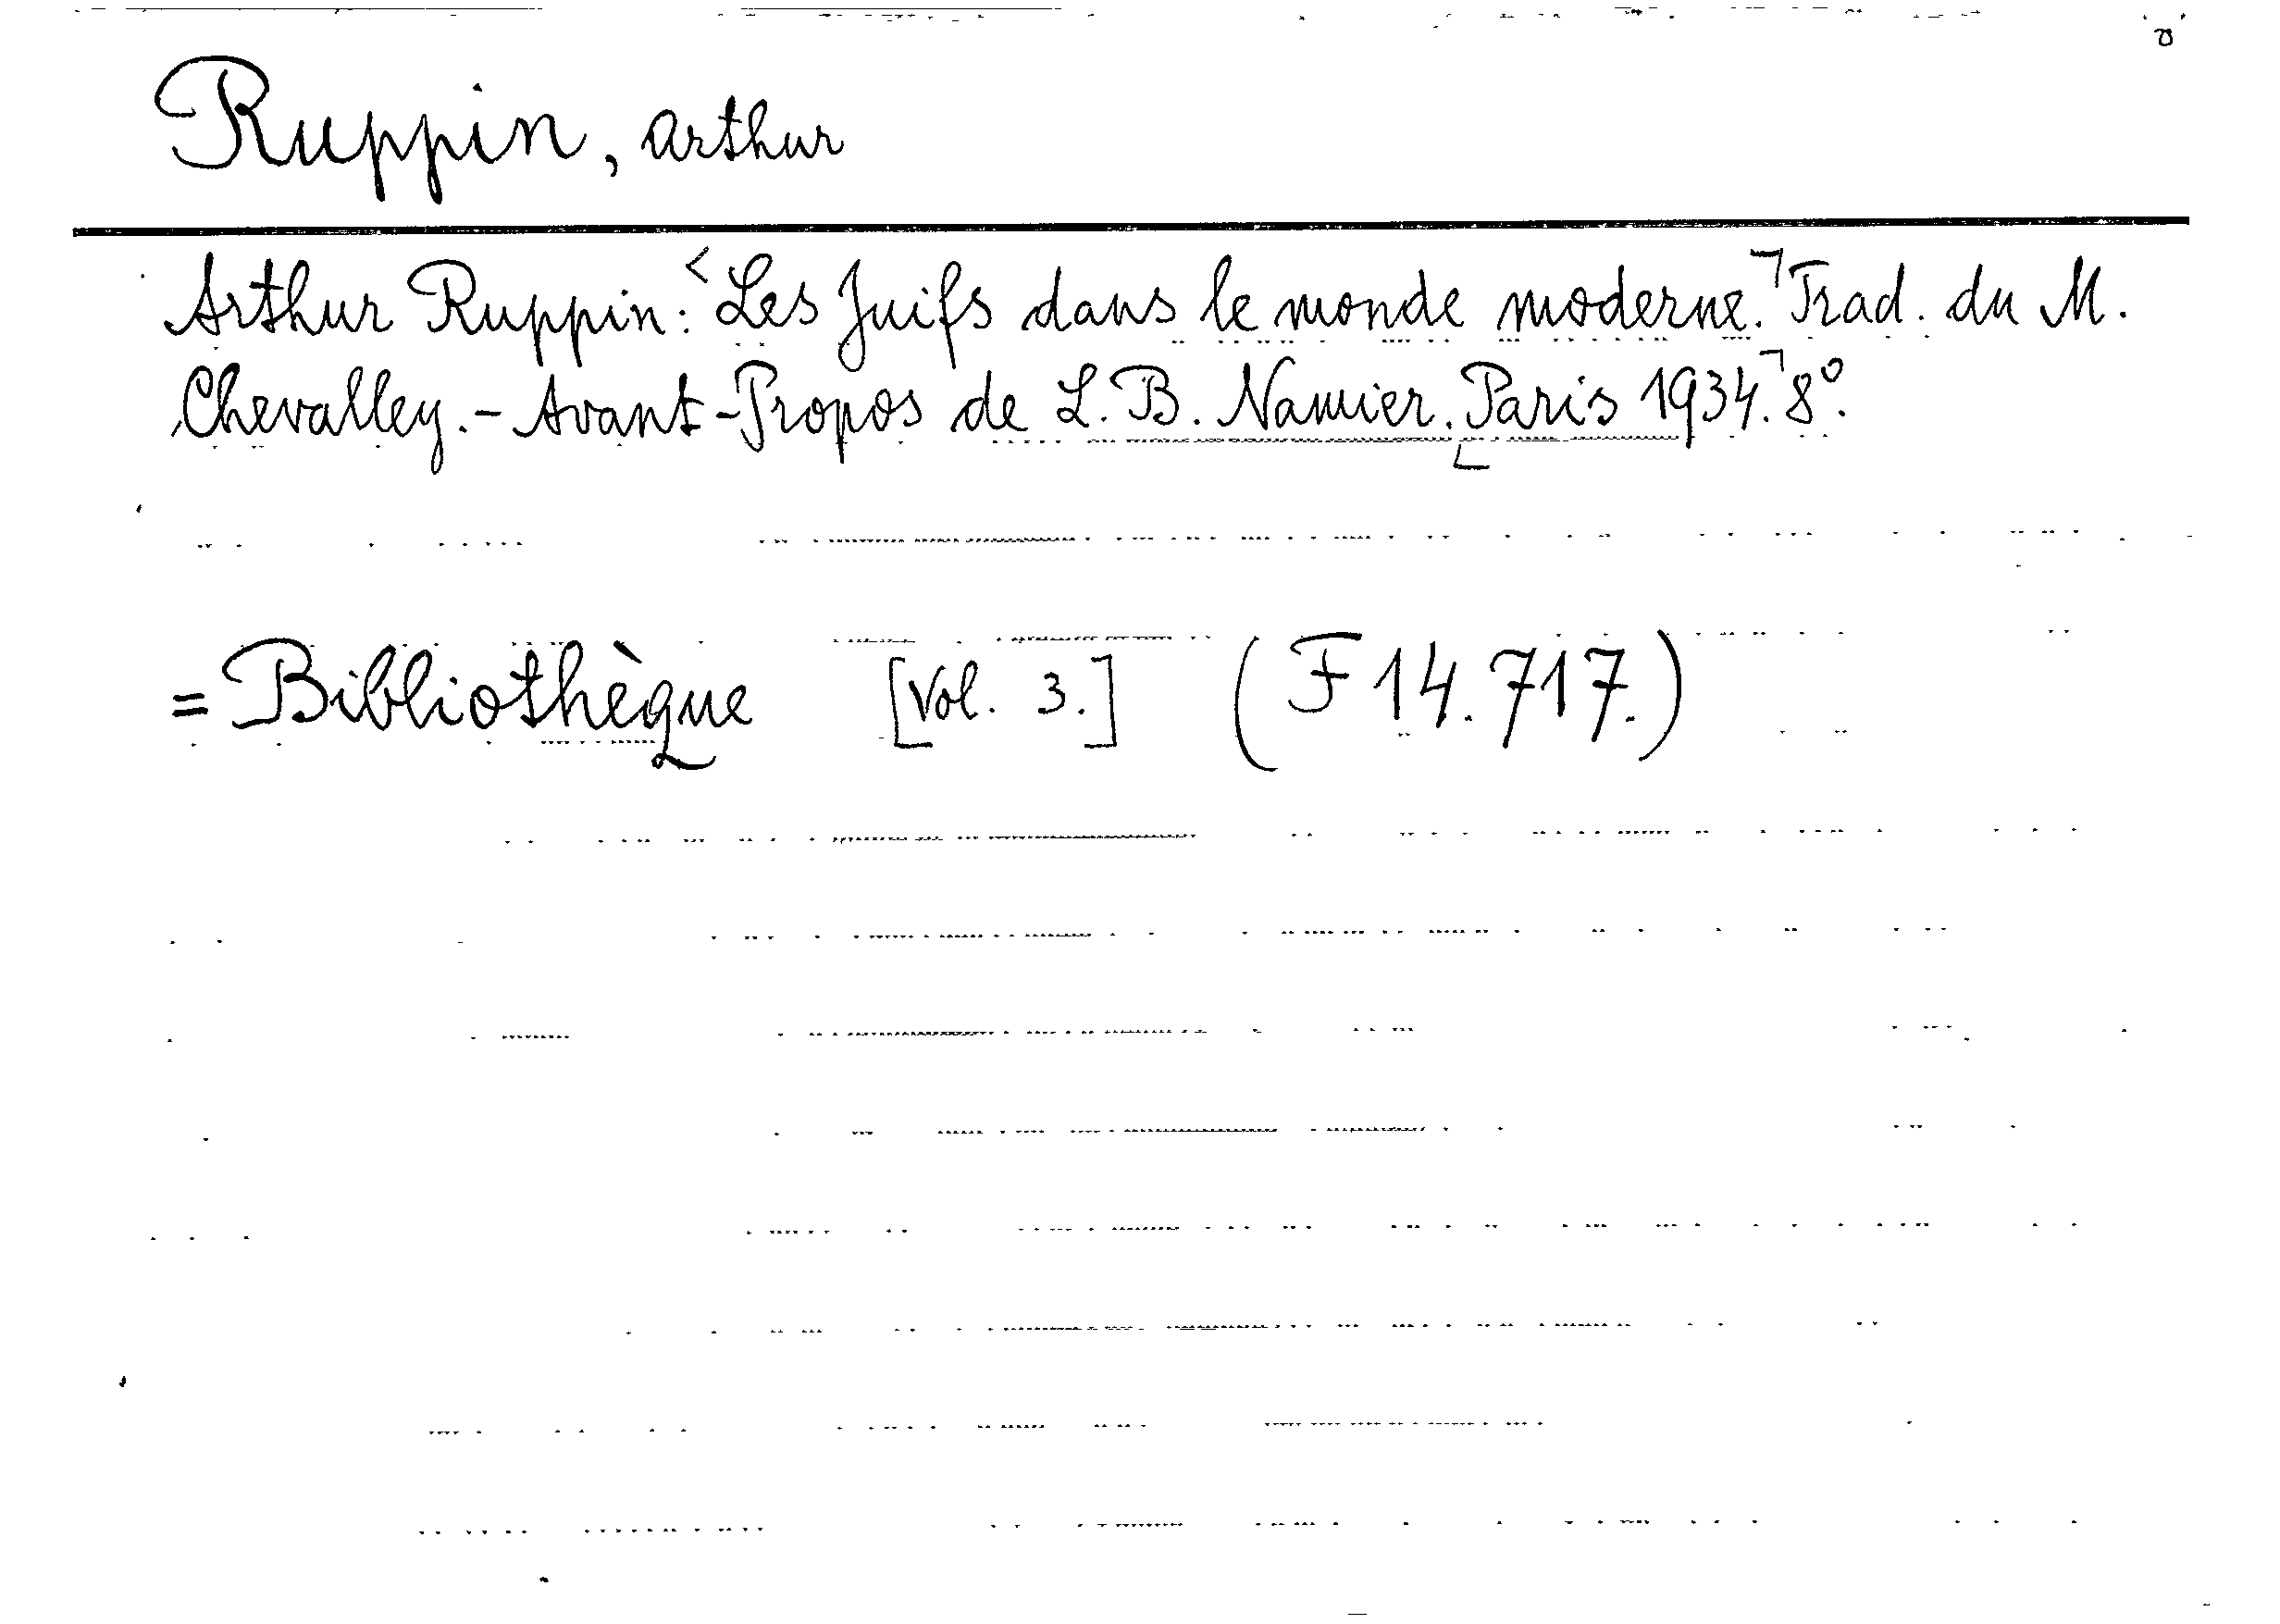 Ruppin, Arthur
Arthur Ruppin: Les Juifs dans le monde moderne. Trad. du M.
Chevalley. - Avant-Propos de L. B. Namier. Paris 1934. 8°.
= Bibliothèque [Vol. 3.] (F 14.717.)